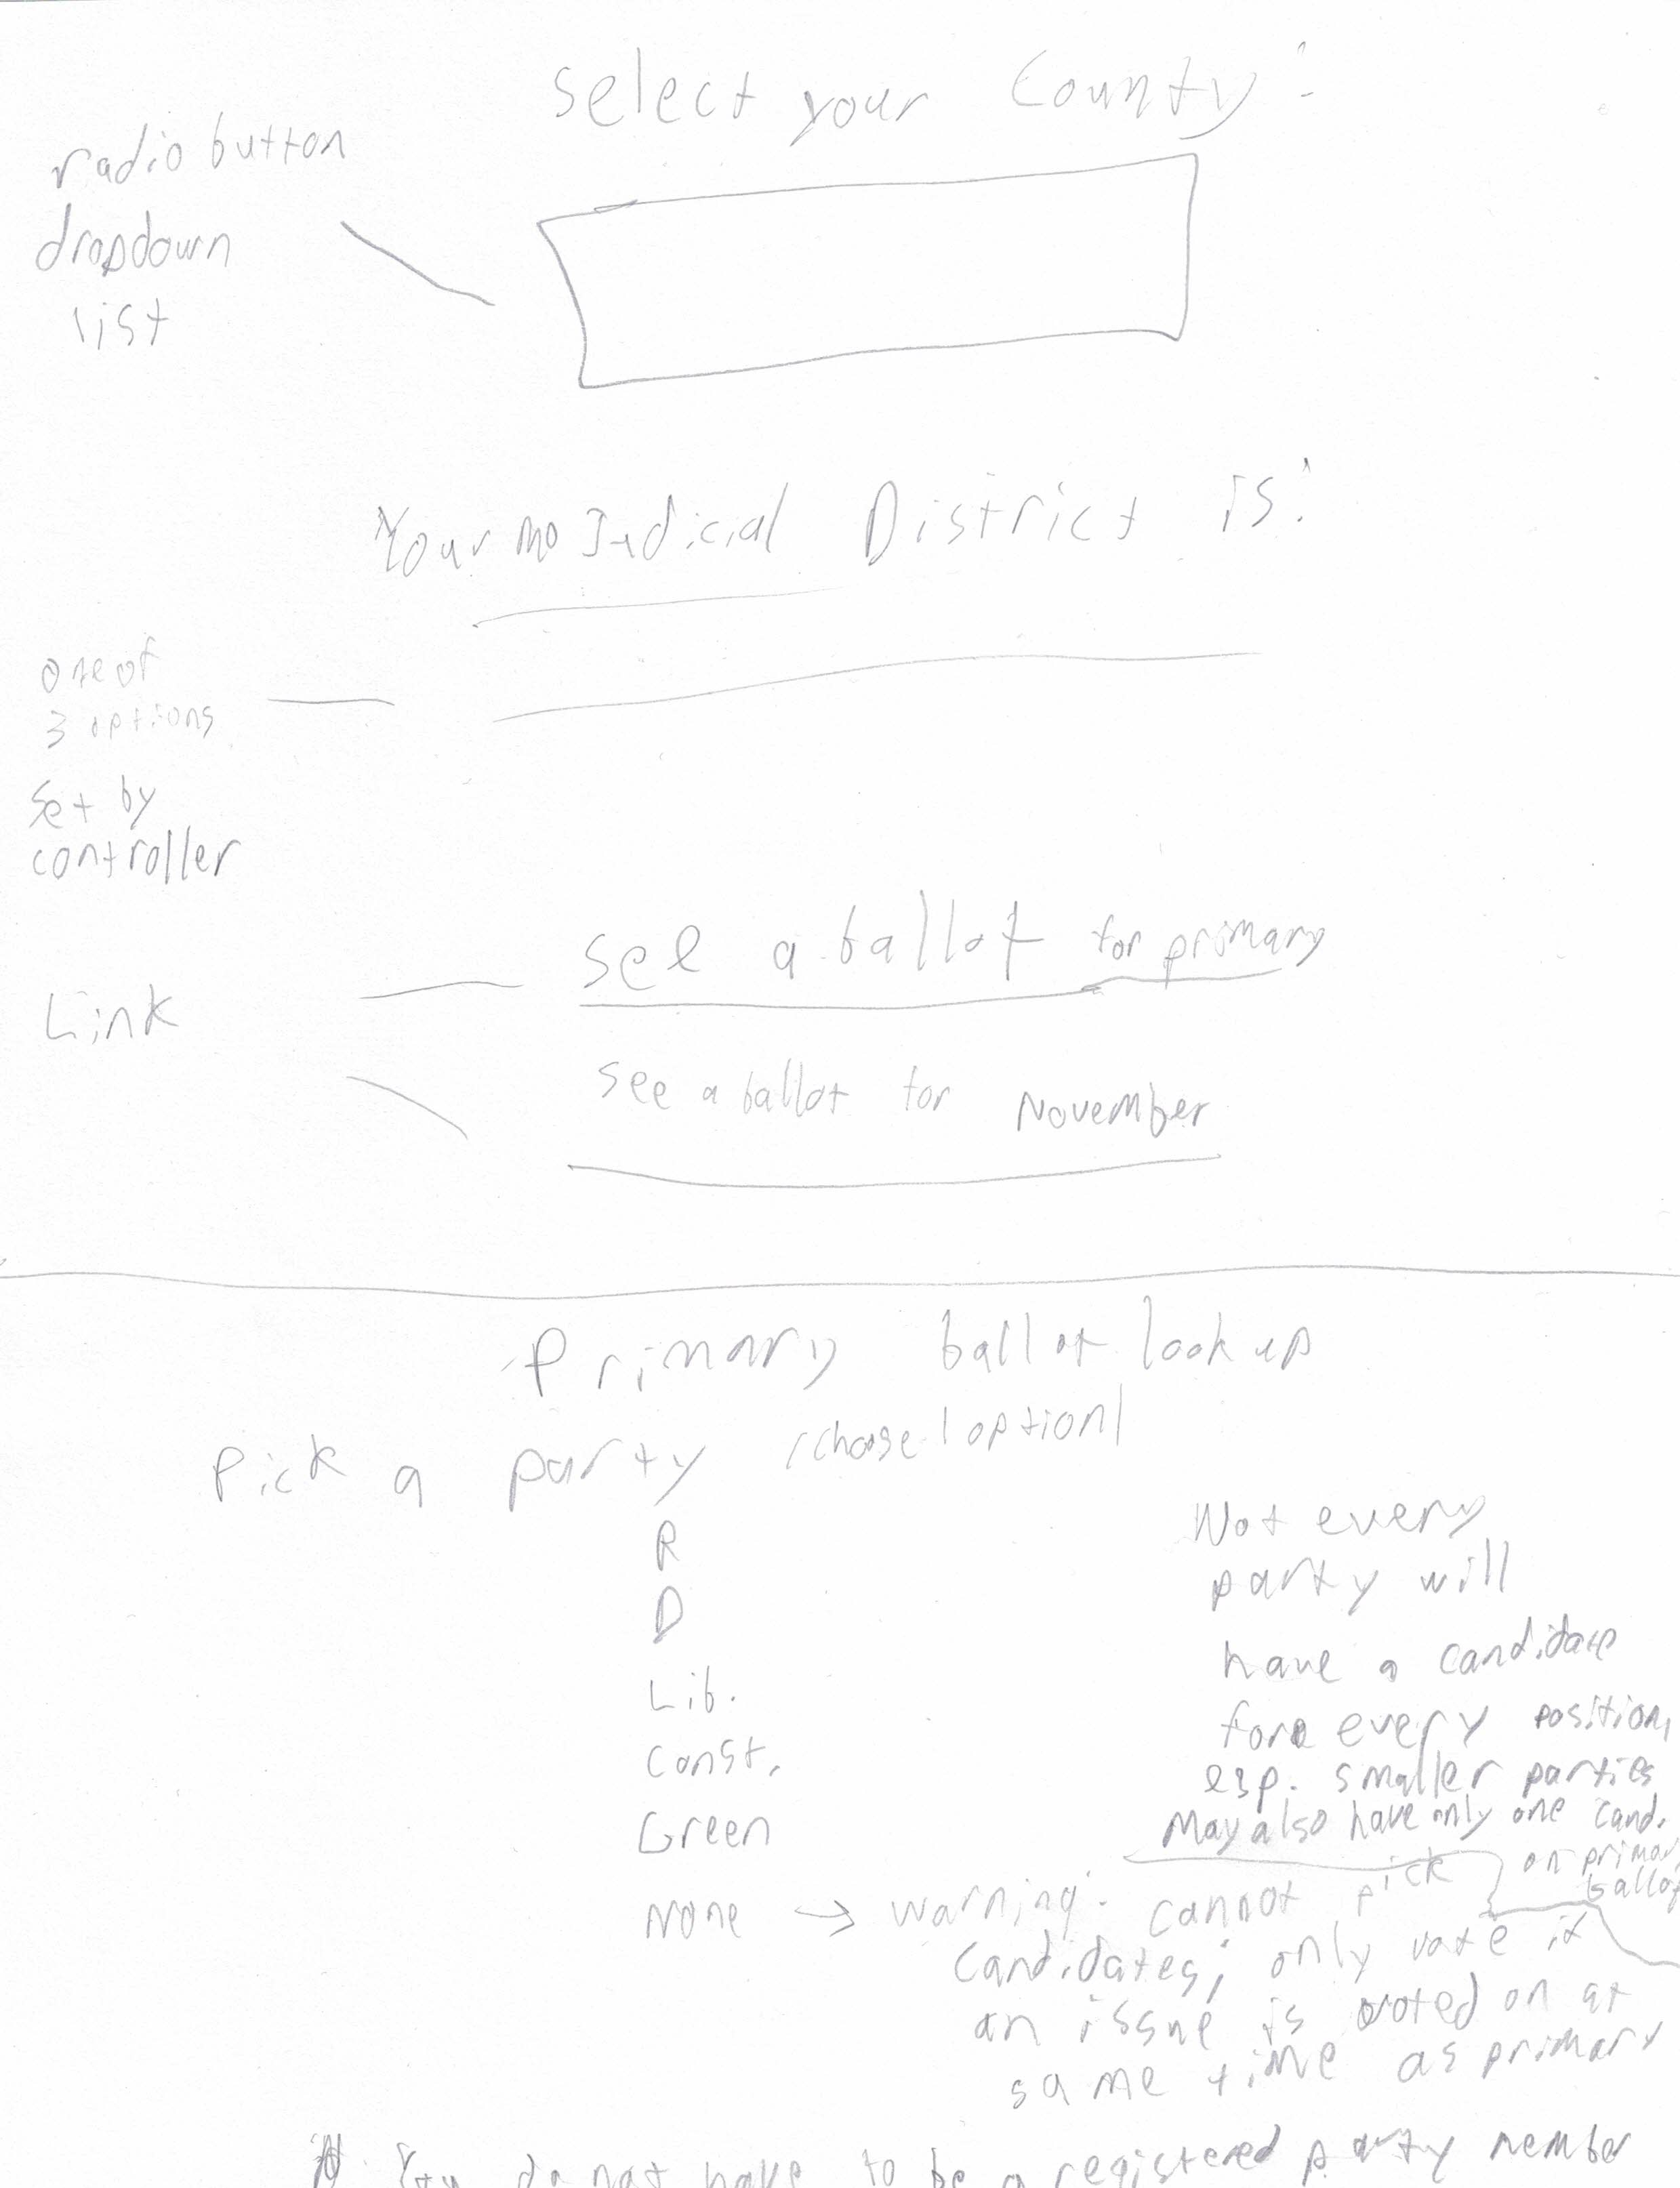 Select your County:
radio button
dropdown
list
Your MO Judicial District is:
one of
3 options
set by
controller
see a ballot for primary
Link
see a ballot for November
Primary ballot lookup
Pick a party (choose 1 option)
R
D
Lib.
Const.
Green
None → warning: cannot pick
candidates; only vote if
an issue is voted on at
same time as primary
Not every
party will
have a candidate
for every position,
esp. smaller parties
May also have only one cand.
on primary
ballot
You do not have to be a registered party member